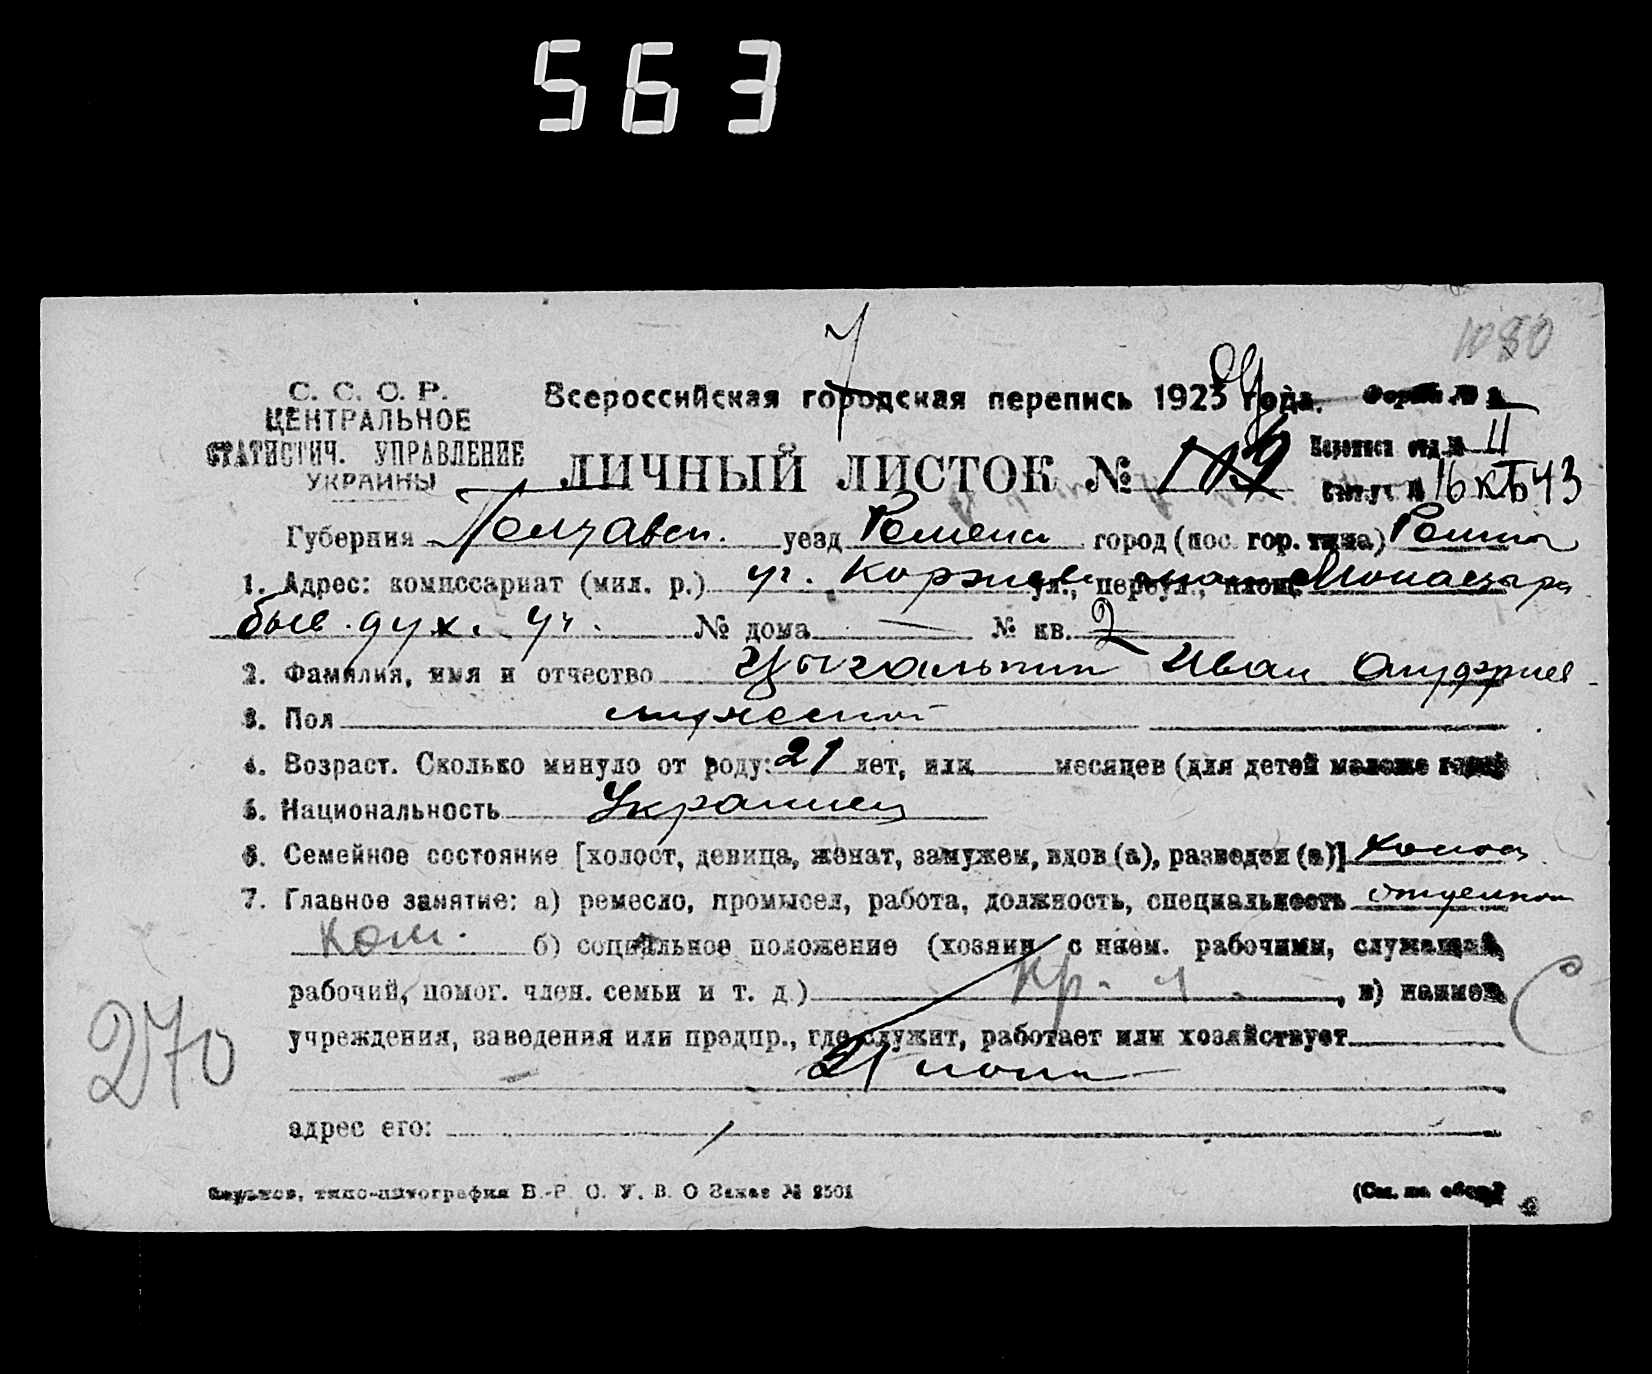 563
1080
7
С. С. С. Р.
ЦЕНТРАЛЬНОЕ
СТАТИСТИЧ. УПРАВЛЕНИЕ
УКРАИНЫ
Всероссийская городская перепись 1923 года. Форма № 2
ЛИЧНЫЙ ЛИСТОК №
Переписн отд. № II
Счетн. уч. № 16 КБ 43
Губерния Полтавск. уезд Роменск город (пос. гор. типа) Ромны
1. Адрес: комиссариат (мил. р.) уг. Коржев ул., переул., площ. Монастыр
быв. дух. уч. № дома — № кв. 2
2. Фамилия, имя и отчество Иван Ануфриев
3. Пол мужской
4. Возраст. Сколько минуло от роду: 21 лет, или месяцев (для детей моложе года)
5. Национальность Украинец
6. Семейное состояние [холост, девица, женат, замужем, вдов (а), разведен (а)] холост
7. Главное занятие: а) ремесло, промысел, работа, должность, специальность
б) социальное положение (хозяин с наем. рабочими, служащий,
рабочий, помог. член. семьи и т. д.) Кр. , в) наимен.
учреждения, заведения или предпр., где служит, работает или хозяйствует
270
адрес его:
Харьков, типо-литография В. Р. С. У. В. О Заказ № 2501
(См. на обор.)